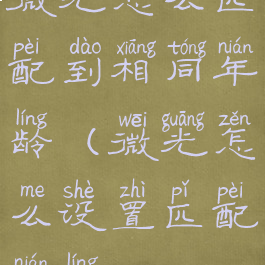 微光怎么匹
pèi dào xiāng tóng nián
配到相同年
líng wēi guāng zěn
龄（微光怎
me shè zhì pǐ pèi
么设置匹配
nián líng